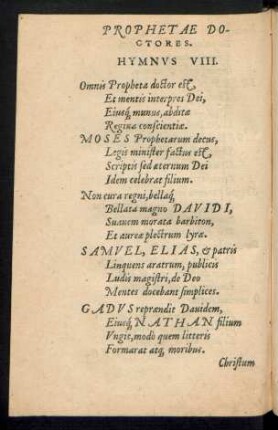 PROPHETAE DO-
CTORES.
HYMNVS VIII.
Omnis Propheta doctor est,
Et mentis interpres Dei,
Eiusq́; munus, abdita
Reginæ conscientiæ.
MOSES Prophetarum decus,
Legis minister factus est,
Scriptis sed æternum Dei
Idem celebrat filium.
Non cura regni, bellaq́;
Bellata magno DAVIDI,
Suauem morata barbiton,
Et aureæ plectrum lyræ.
SAMVEL, ELIAS, & patris
Linquens aratrum, publicis
Ludis magistri, de Deo
Mentes docebant simplices.
GADVS reprændit Dauidem,
Eiusq́; NATHAN filium
Vngit, modò quem litteris
Formarat atq; moribus.
Christum